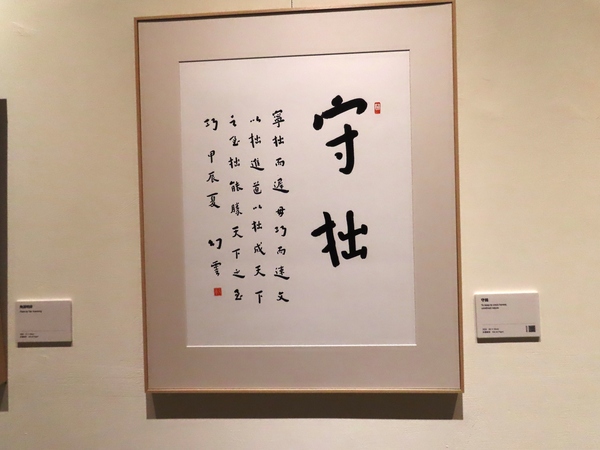 守拙
寧拙而遲毋巧而速文
以拙進道以拙成天下
之至拙能勝天下之至
巧 甲辰夏 幻雲
守拙